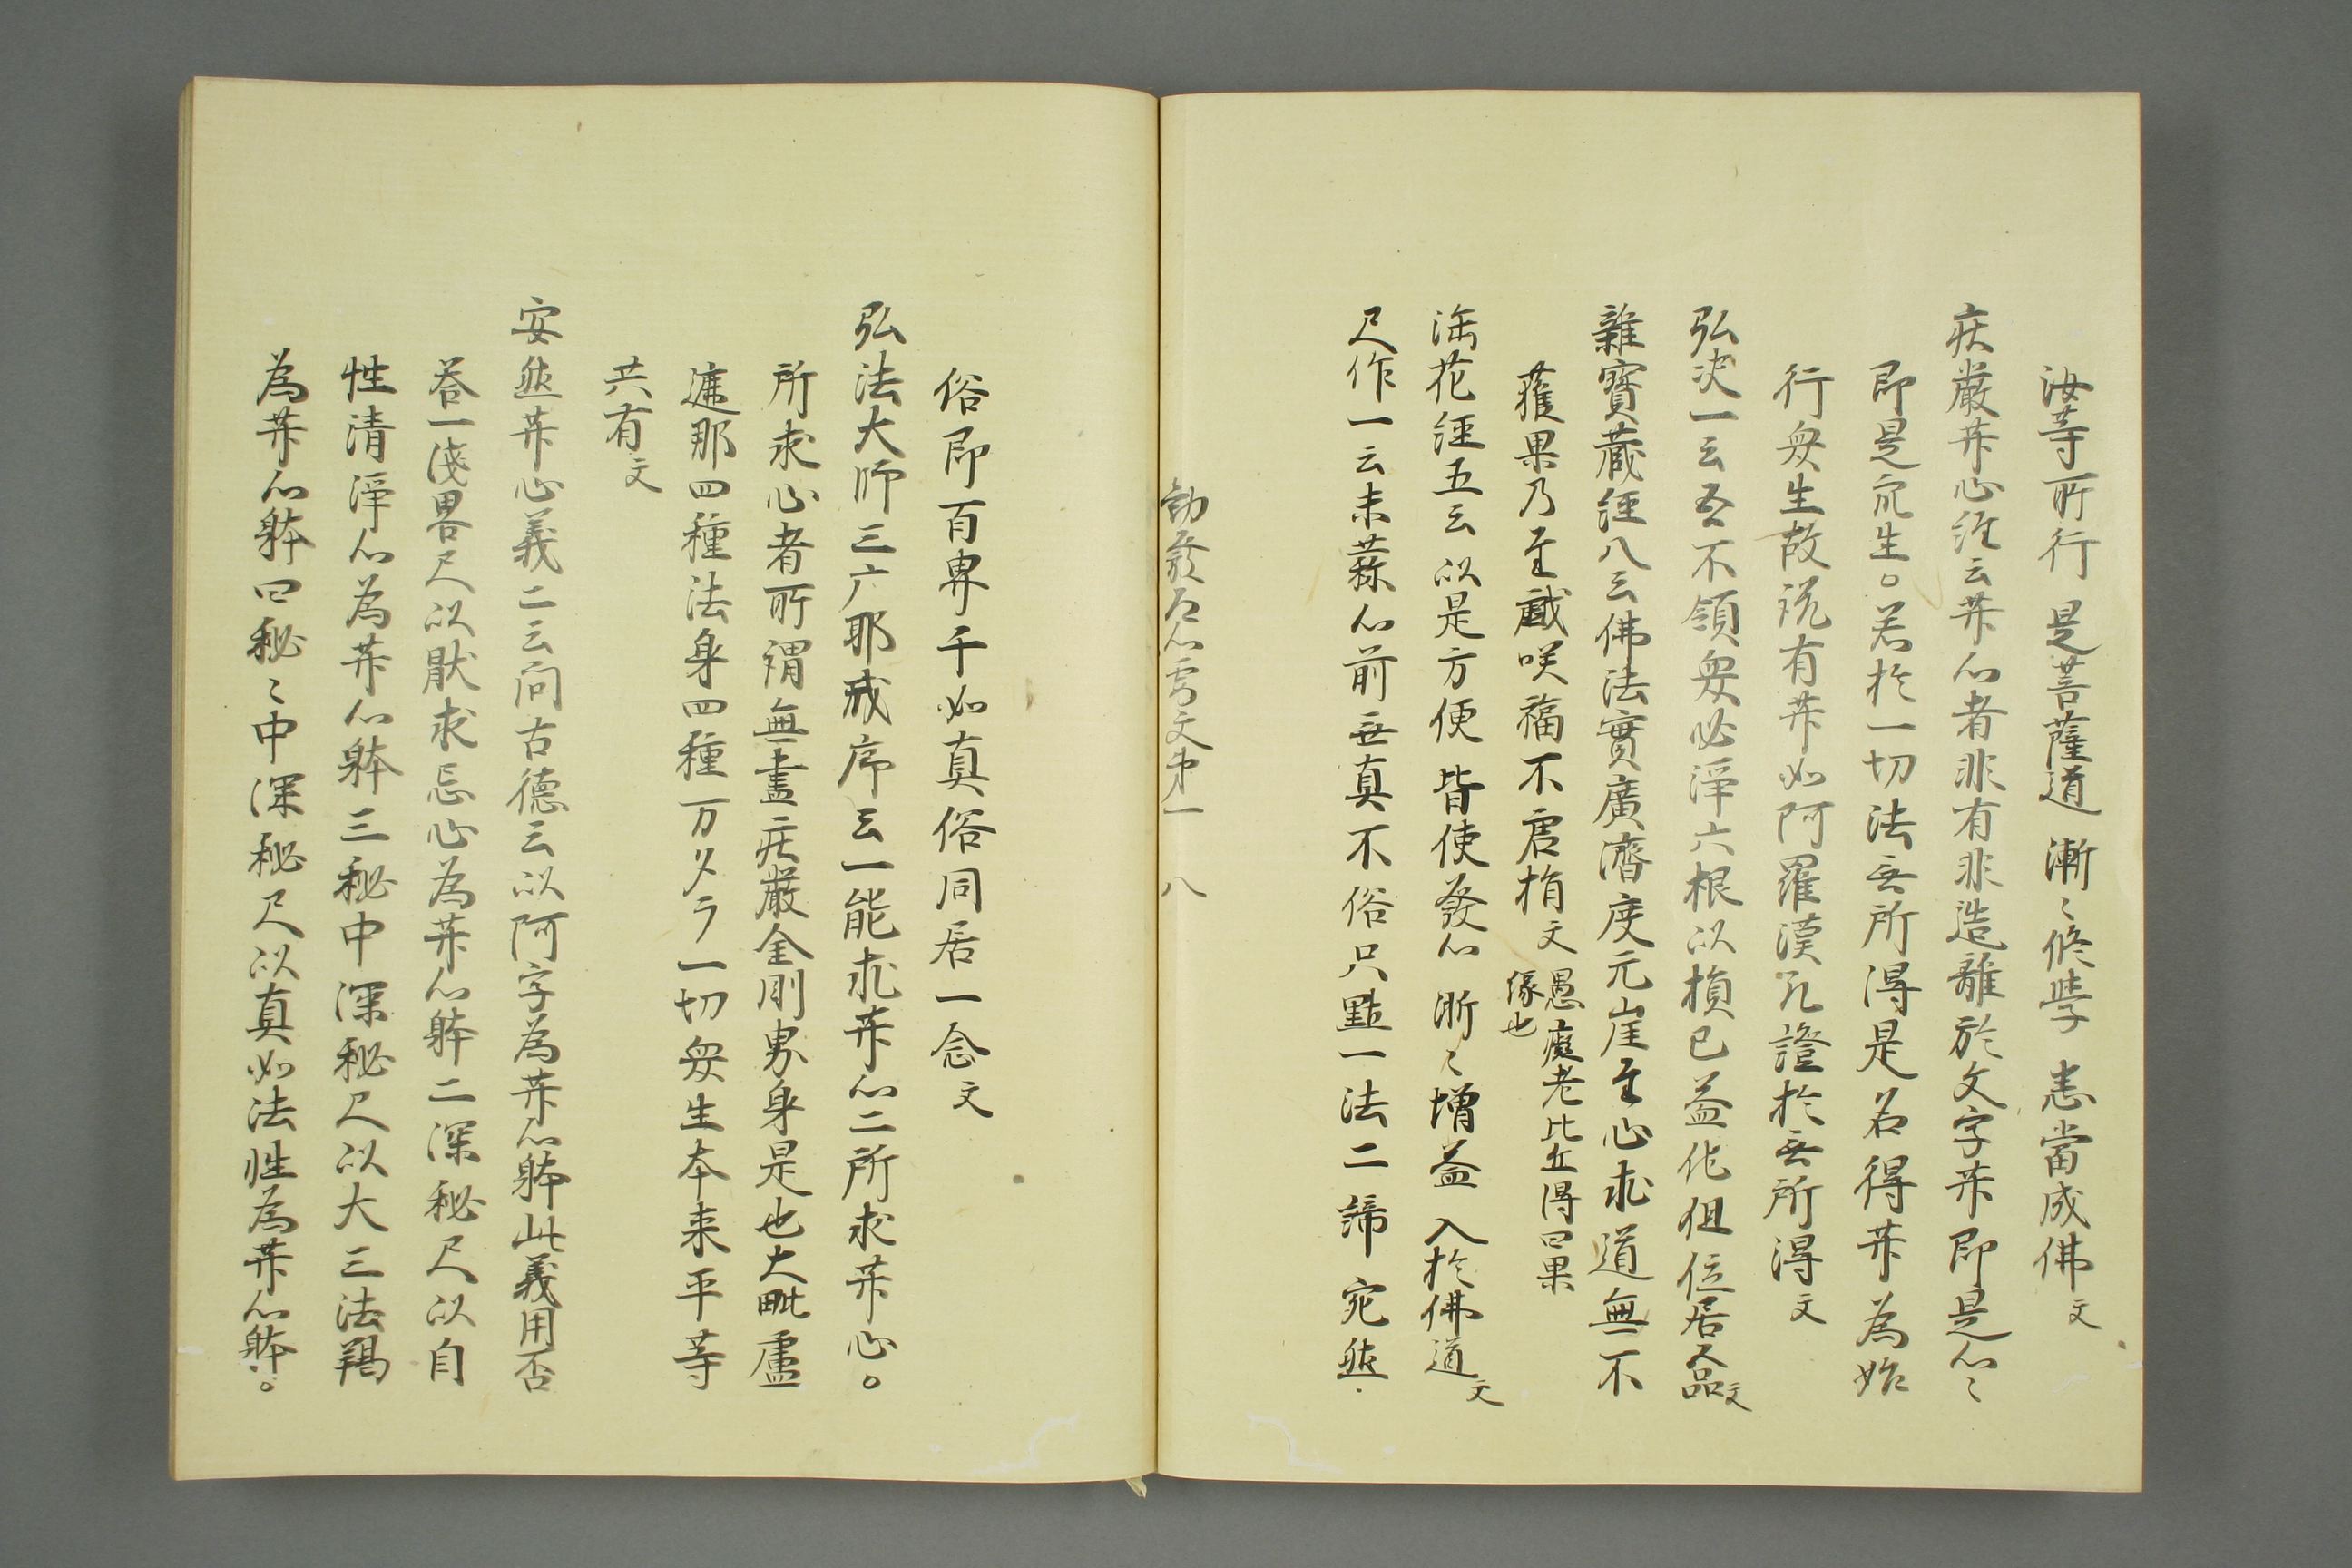 汝等所行 是菩薩道 漸〻修学 悉當成佛文
庄嚴𦬇心経云𦬇心者非有非造離於文字𦬇即是心〻
即是衆生。若於一切法无所得是名得𦬇為始
行衆生故説有𦬇如阿羅漢凡證於无所得文
弘决一云吾不領衆必淨六根以損己益他但位居五品文
雜寶藏経八云佛法寛廣濟度无崖至心求道無不
獲果乃至戯咲福不唐捐文 愚癡老比丘得四果
縁也
法花経五云 以是方便 皆使發心 漸〻増益 入於佛道文
尺作一云未蘇心前无真不俗只點一法二諦宛然
勧發
文第一 八
俗即百界千如真俗同居一念文
弘法大師三广耶戒序云一能求𦬇心二所求𦬇心。
所求心者所謂無盡庄嚴金剛界身是也大毗盧
遮那四種法身四種万タラ一切衆生本来平等
共有文
安然𦬇心義二云問古德云以阿字為𦬇心躰此義用否
荅一淺畧尺以猒求忘心為𦬇心躰二深秘尺以自
性清淨心為𦬇心躰三秘中深秘尺以大三法羯
為𦬇心躰四秘〻中深秘尺以真如法性為𦬇心躰。